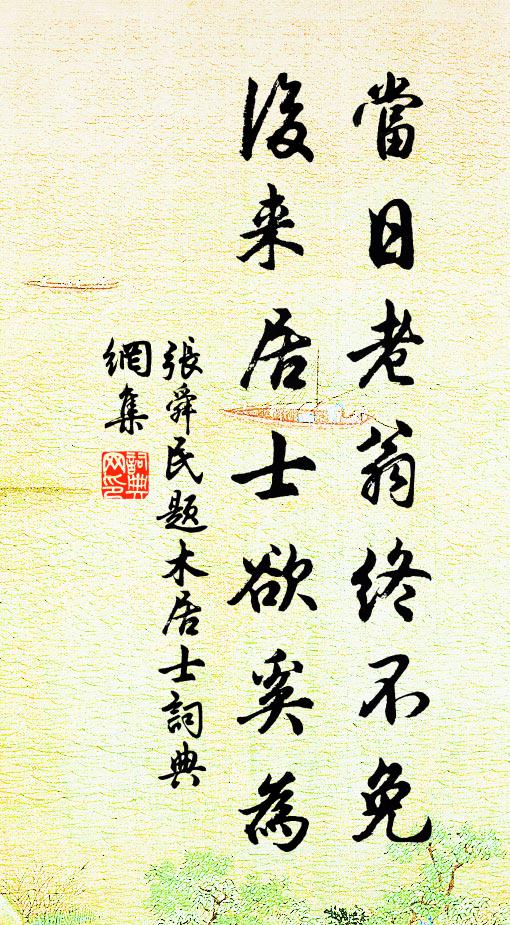 當日老翁終不免
後来居士欲奚為
張舜民題木居士詞典
網集
詞典
网印